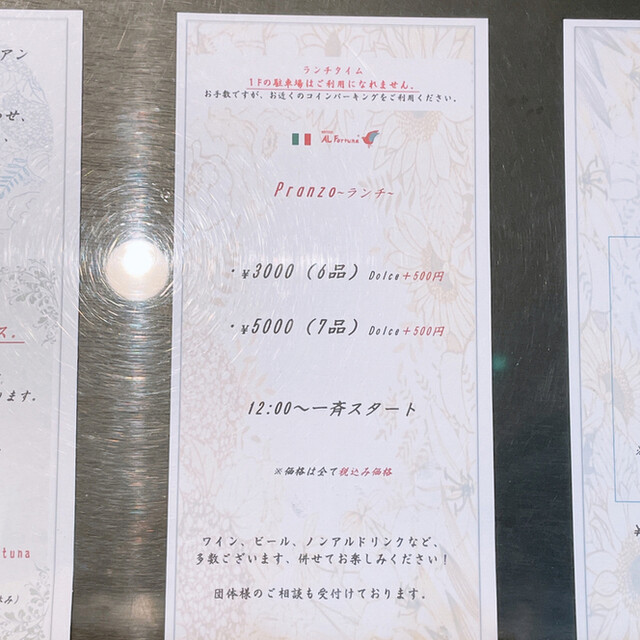 ランチタイム
1Fの駐車場はご利用になれません。
お手数ですが、お近くのコインパーキングをご利用ください。
AL Fortuna
Pranzo~ランチ~
・¥3000（6品）Dolce+500円
・¥5000（7品）Dolce+500円
12:00〜一斉スタート
※価格は全て税込み価格
ワイン、ビール、ノンアルドリンクなど、
多数ございます、併せてお楽しみください！
団体様のご相談も受付けております。
アン
わせ、
ス。
ります。
tuna
み）